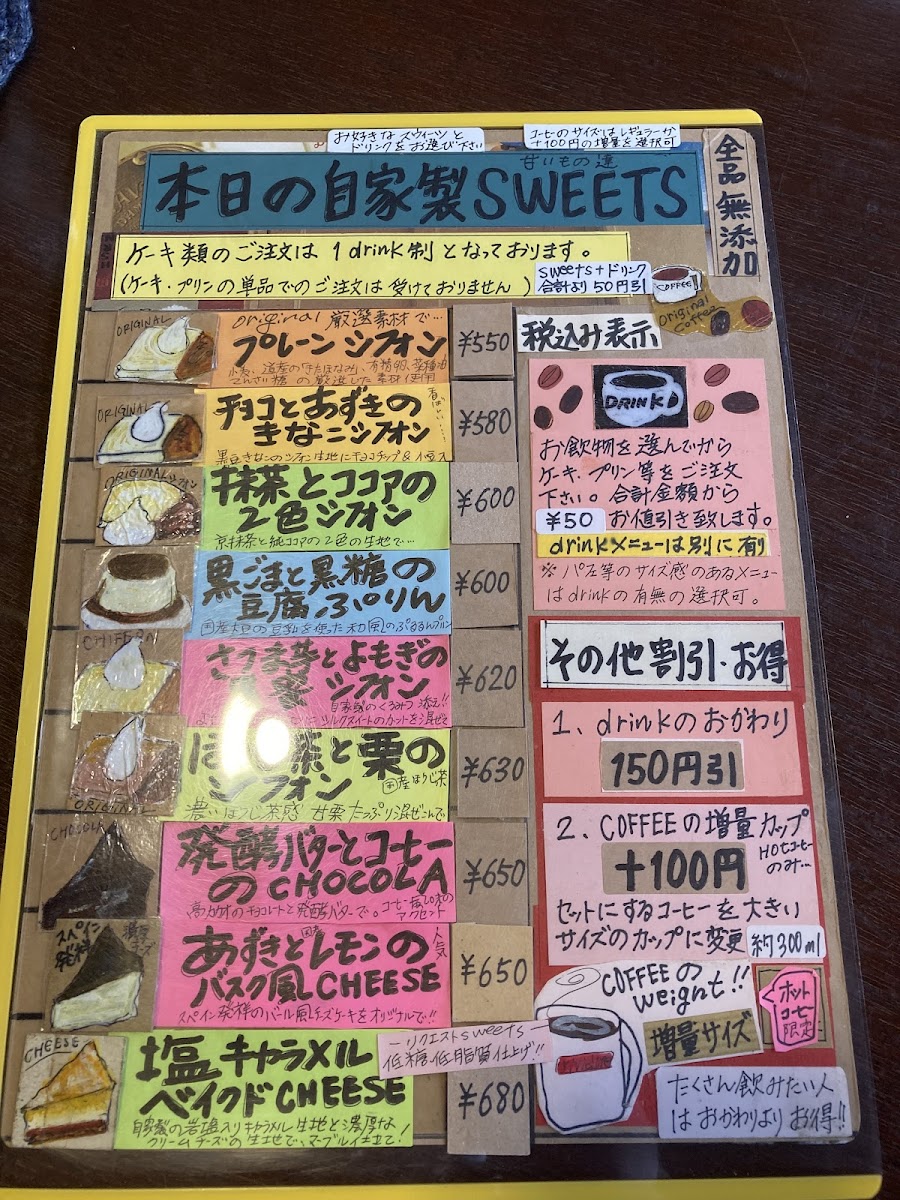 お好きなスウィーツと
ドリンクをお選び下さい
コーヒーのサイズはレギュラーか
+100円の増量を選択可
全品無添加
甘いもの達
本日の自家製SWEETS
ケーキ類のご注文は 1drink制となっております。
(ケーキ・プリンの単品でのご注文は受けておりません)
sweets+ドリンク
合計より50円引
COFFEE
original
coffee
ORIGINAL
original 厳選素材で…
プレーンシフォン
¥550
ORIGINAL
チョコとあずきの
きなこシフォン
¥580
ORIGINALシフォン
抹茶とココアの
2色シフォン
京抹茶と純ココアの2色の生地で…
¥600
黒ごまと黒糖の
豆腐ぷりん
国産大豆の豆乳を使った和風のぷるるんプリン
¥600
CHIFFON
さつま芋とよもぎの
シフォン
自家製のくるみつ添え!!
¥620
ORIGINAL
ほ 茶と栗の
シフォン
国産ほうじ茶
濃いほうじ茶感 甘栗たっぷり混ぜこんで
¥630
CHOCOLA
発酵バターとコーヒー
のCHOCOLA
高カカオのチョコレートと発酵バターで。コーヒー風味の
アクセント
¥650
スペイン
発祥
あずきと国産レモンの
バスク風CHEESE
人気
スペイン発祥のバール風チーズケーキをオリジナルで!!
¥650
ーリクエストsweetsー
低糖・低脂質仕上げ!!
CHEESE
塩キャラメル
ベイクドCHEESE
自家製の岩塩入りキャラメル生地と濃厚な
クリームチーズの生地で、マーブル仕立て!
¥680
税込み表示
DRINK
お飲物を選んでから
ケーキ、プリン等をご注文
下さい。合計金額から
¥50 お値引き致します。
drinkメニューは別に有り
※パフェ等のサイズ感のあるメニュー
はdrinkの有無の選択可。
その他割引・お得
1、drinkのおかわり
150円引
2、COFFEEの増量カップ
HOTコーヒー
のみ…
+100円
セットにするコーヒーを大きい
サイズのカップに変更 約300ml
COFFEEの
weight!!
増量サイズ
ホット
コーヒー
限定
たくさん飲みたい人
はおかわりよりお得!!